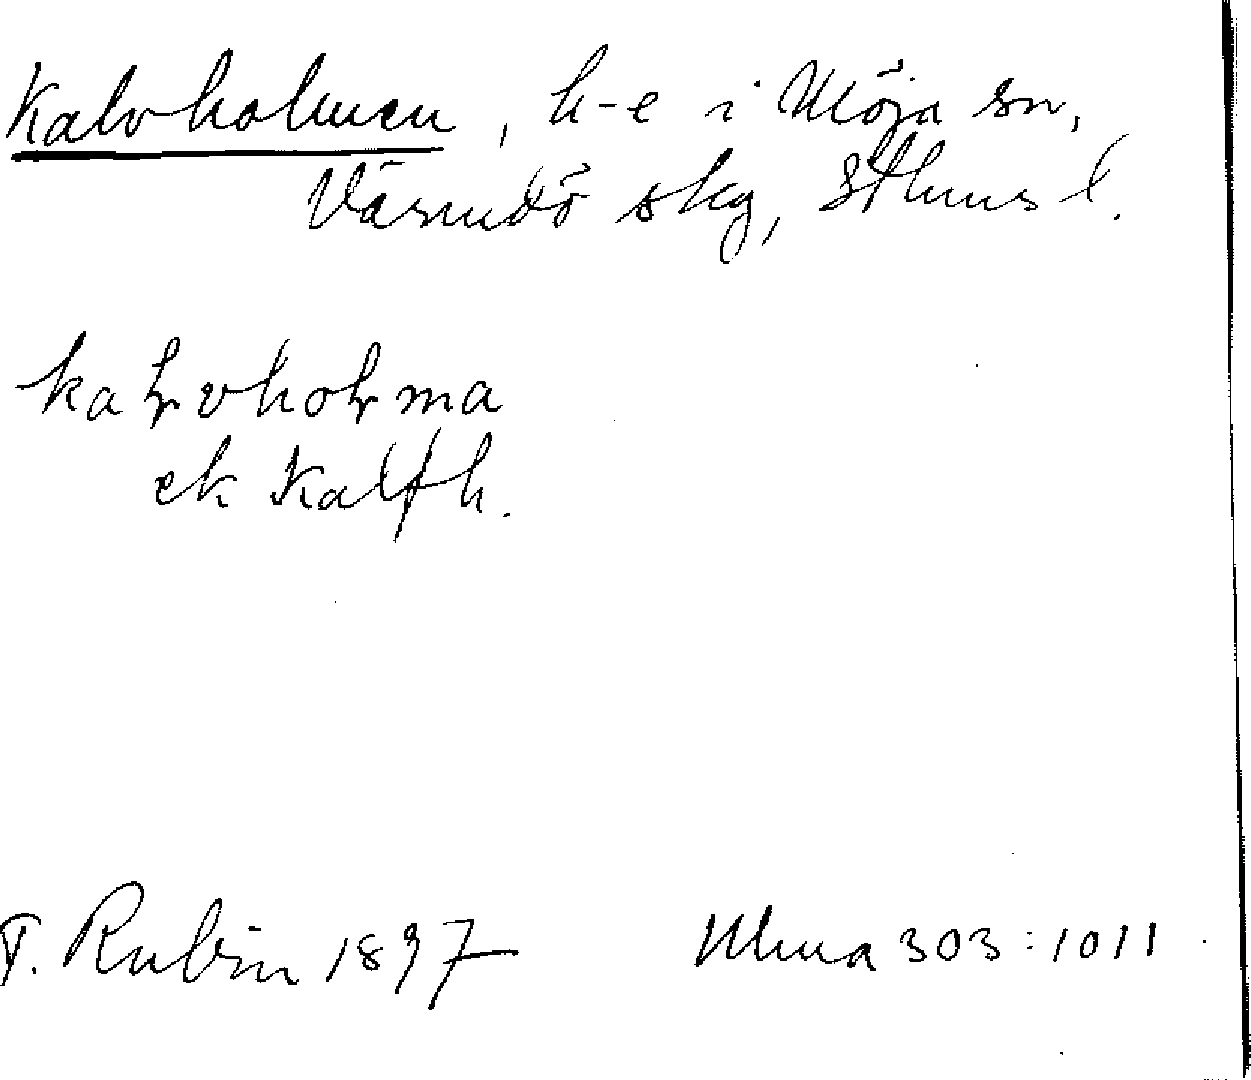 Kalvholmen, h-e i Möja sn,
Värmdö skg, Sthms l.
kaꞎvhoꞎma
ek Kalfh.
T. Rubin 1897
Ulma 303:1011